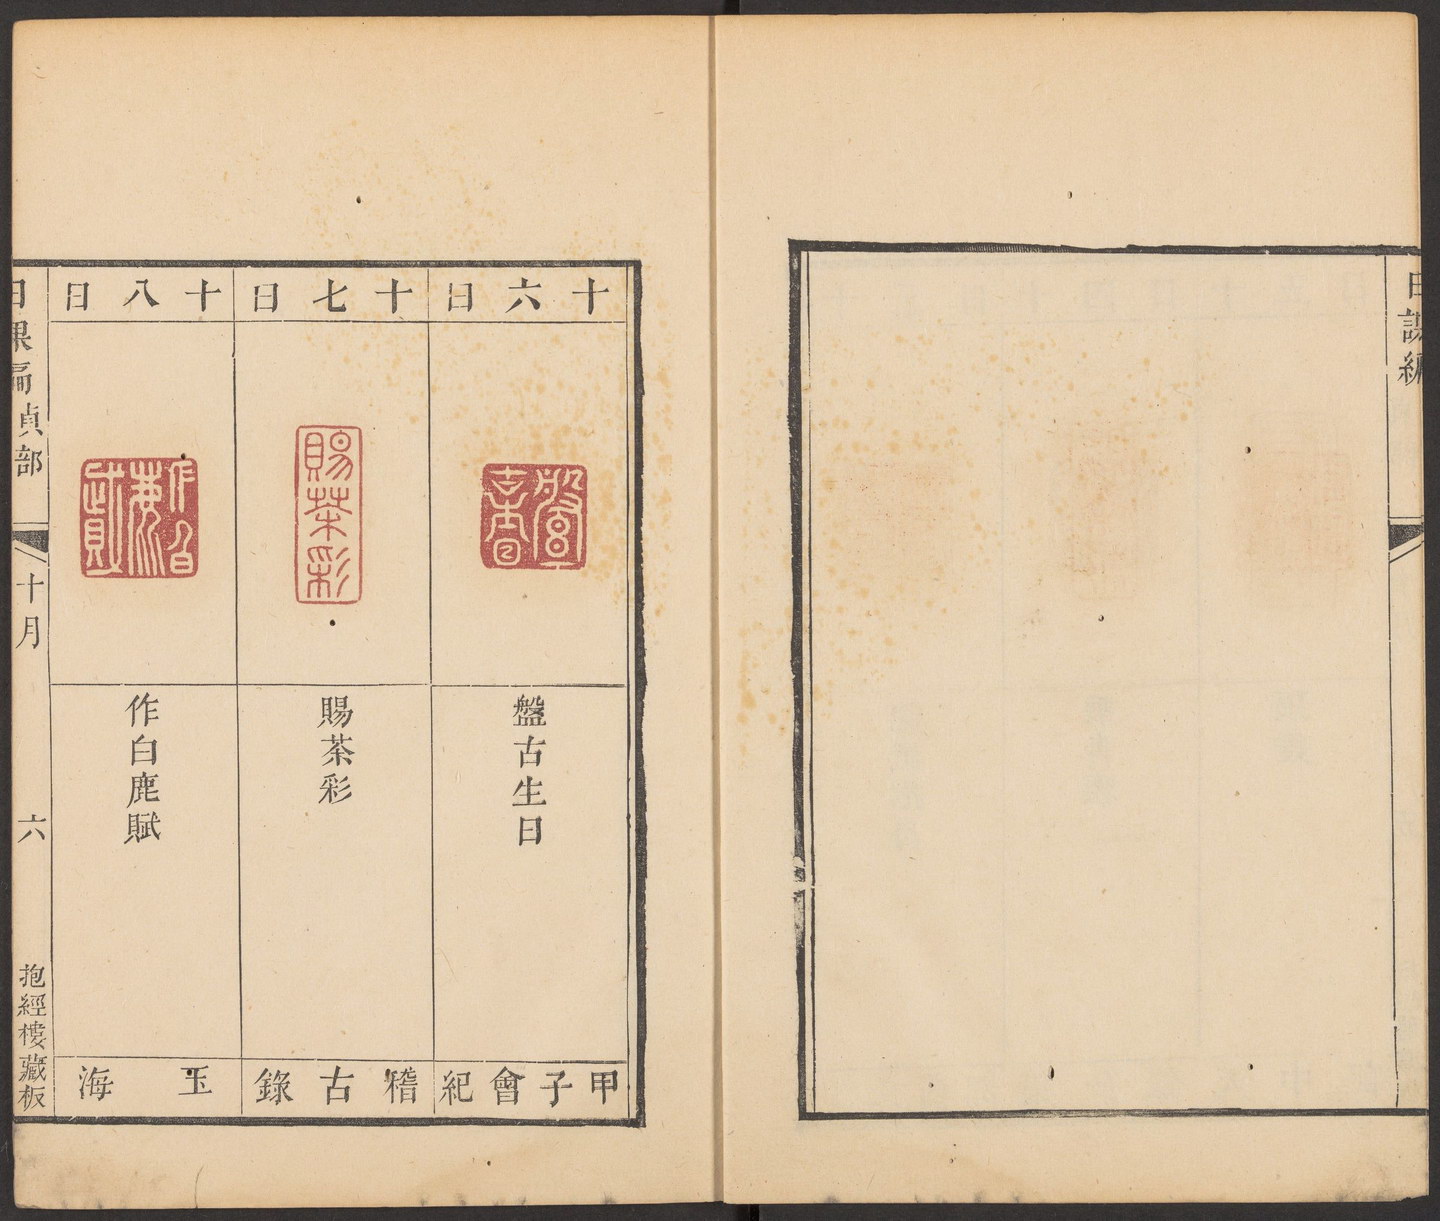 日課編
十六日
盤古生日
甲子會紀
十七日
賜茶彩
賜茶彩
稽古錄
十八日
作白鹿賦
玉海
日課編貞部
十月
六
抱經樓藏板